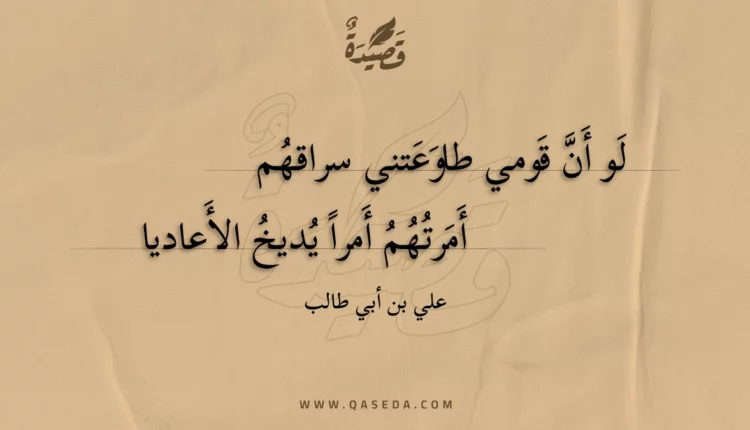 قَصِيدَةٌ
لَو أَنَّ قَومي طاوَعَتني سراقهُم
أَمَرتُهُمُ أَمراً يُديخُ الأَعاديا
علي بن أبي طالب
WWW.QASEDA.COM